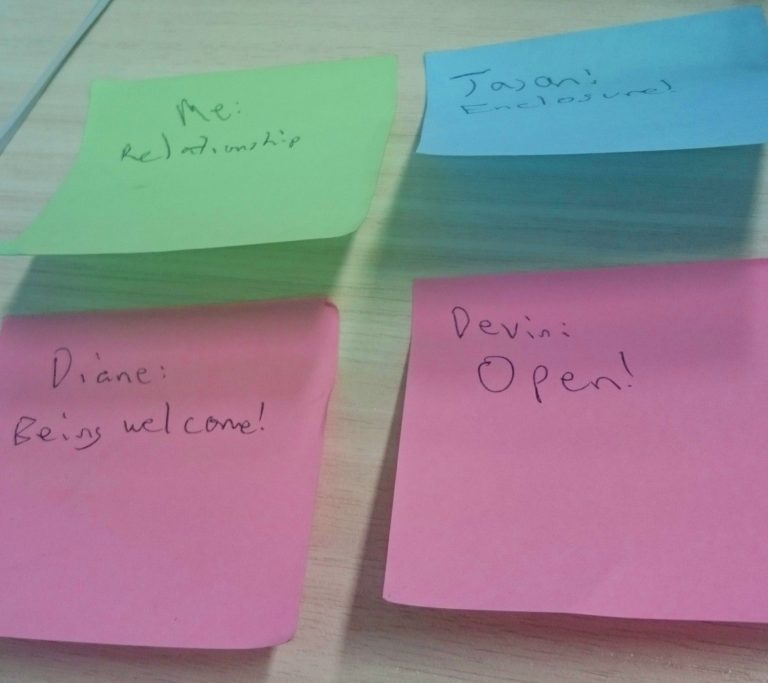 Me:
Relationship
Jason!
Enclosure!
Diane:
Being welcome!
Devin:
Open!